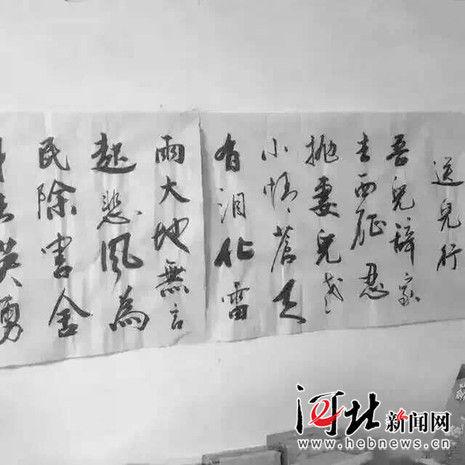 送兒行
吾兒辭家
去西征忍
抛妻兒老
小情蒼天
有泪化雷
雨大地無言
起悲風為
民除害舍
英勇
河北新闻网
www.hebnews.cn